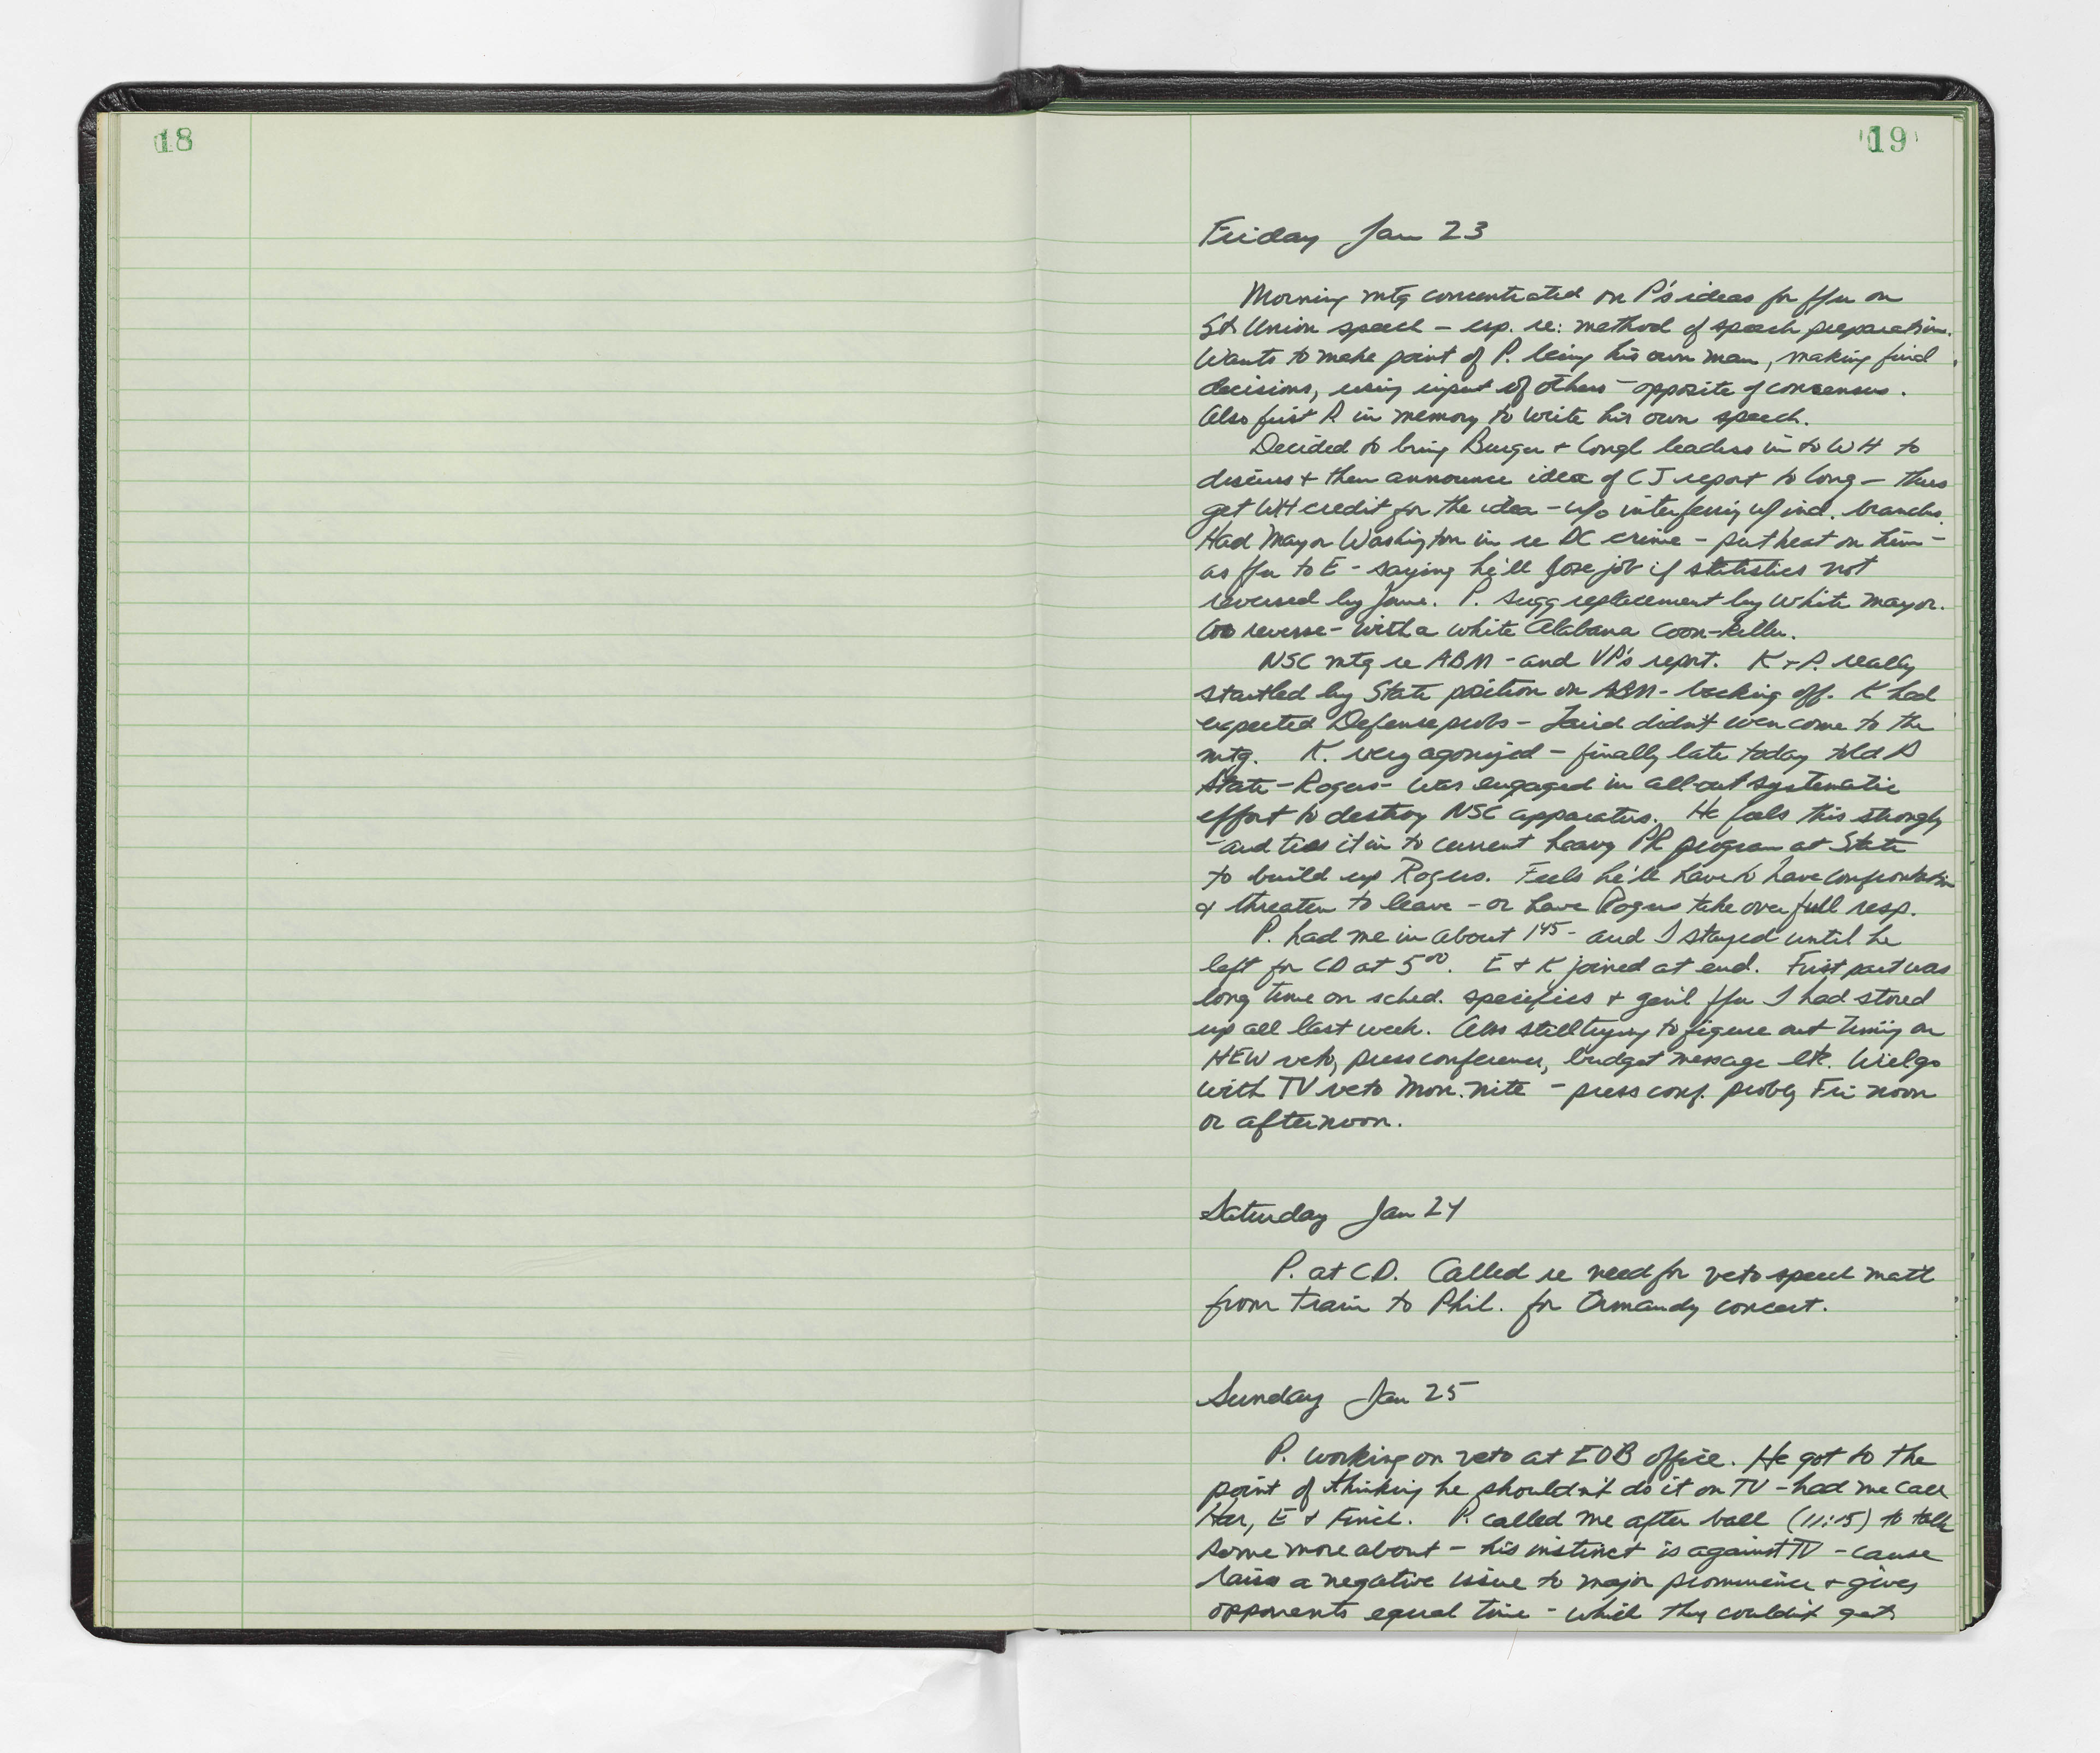 18
19
Friday Jan 23
Morning mtg concentrated on P's ideas for ffu on
St Union speech - esp. re: method of speech preparation.
Wants to make point of P. being his own man, making final
decisions, using input of others - opposite of consensus.
Also first P in memory to write his own speech.
Decided to bring Burger + Congl leaders in to WH to
discuss + then announce idea of CJ report to Cong - thus
get WH credit for the idea - w/o interfering w/ ind. branches.
Had Mayor Washington in re DC crime - put heat on him -
as ffu to E - saying he'll lose job if statistics not
reversed by June. P. sugg replacement by white mayor.
reverse - with a white Alabama Coon-killer.
NSC mtg re ABM - and VP's report. K + P. really
startled by State position on ABM - backing off. K had
expected Defense probs - Laird didn't even come to the
mtg. K. very agonized - finally late today told P
State - Rogers - was engaged in all-out systematic
effort to destroy NSC apparatus. He feels this strongly
- and ties it in to current heavy PR program at State
to build up Rogers. Feels he'll have to have confrontation
& threaten to leave - or have Rogers take over full resp.
P. had me in about 1 45 - and I stayed until he
left for CD at 5 00. E + K joined at end. First part was
long time on sched. specifics + gen'l ffu I had stored
up all last week. Am still trying to figure out timing on
HEW veto, press conference, budget message etc. Will go
with TV veto Mon. nite - press conf. probly Fri noon
or afternoon.
Saturday Jan 24
P. at CD. Called re need for veto speech matl
from train to Phil. for Ormandy concert.
Sunday Jan 25
P. working on veto at EOB office. He got to the
point of thinking he shouldn't do it on TV - had me call
Har, E + Finch. P. called me after ball (11:15) to talk
some more about - his instinct is against TV - cause
raises a negative issue to major prominence + gives
opponents equal time - which they couldn't get